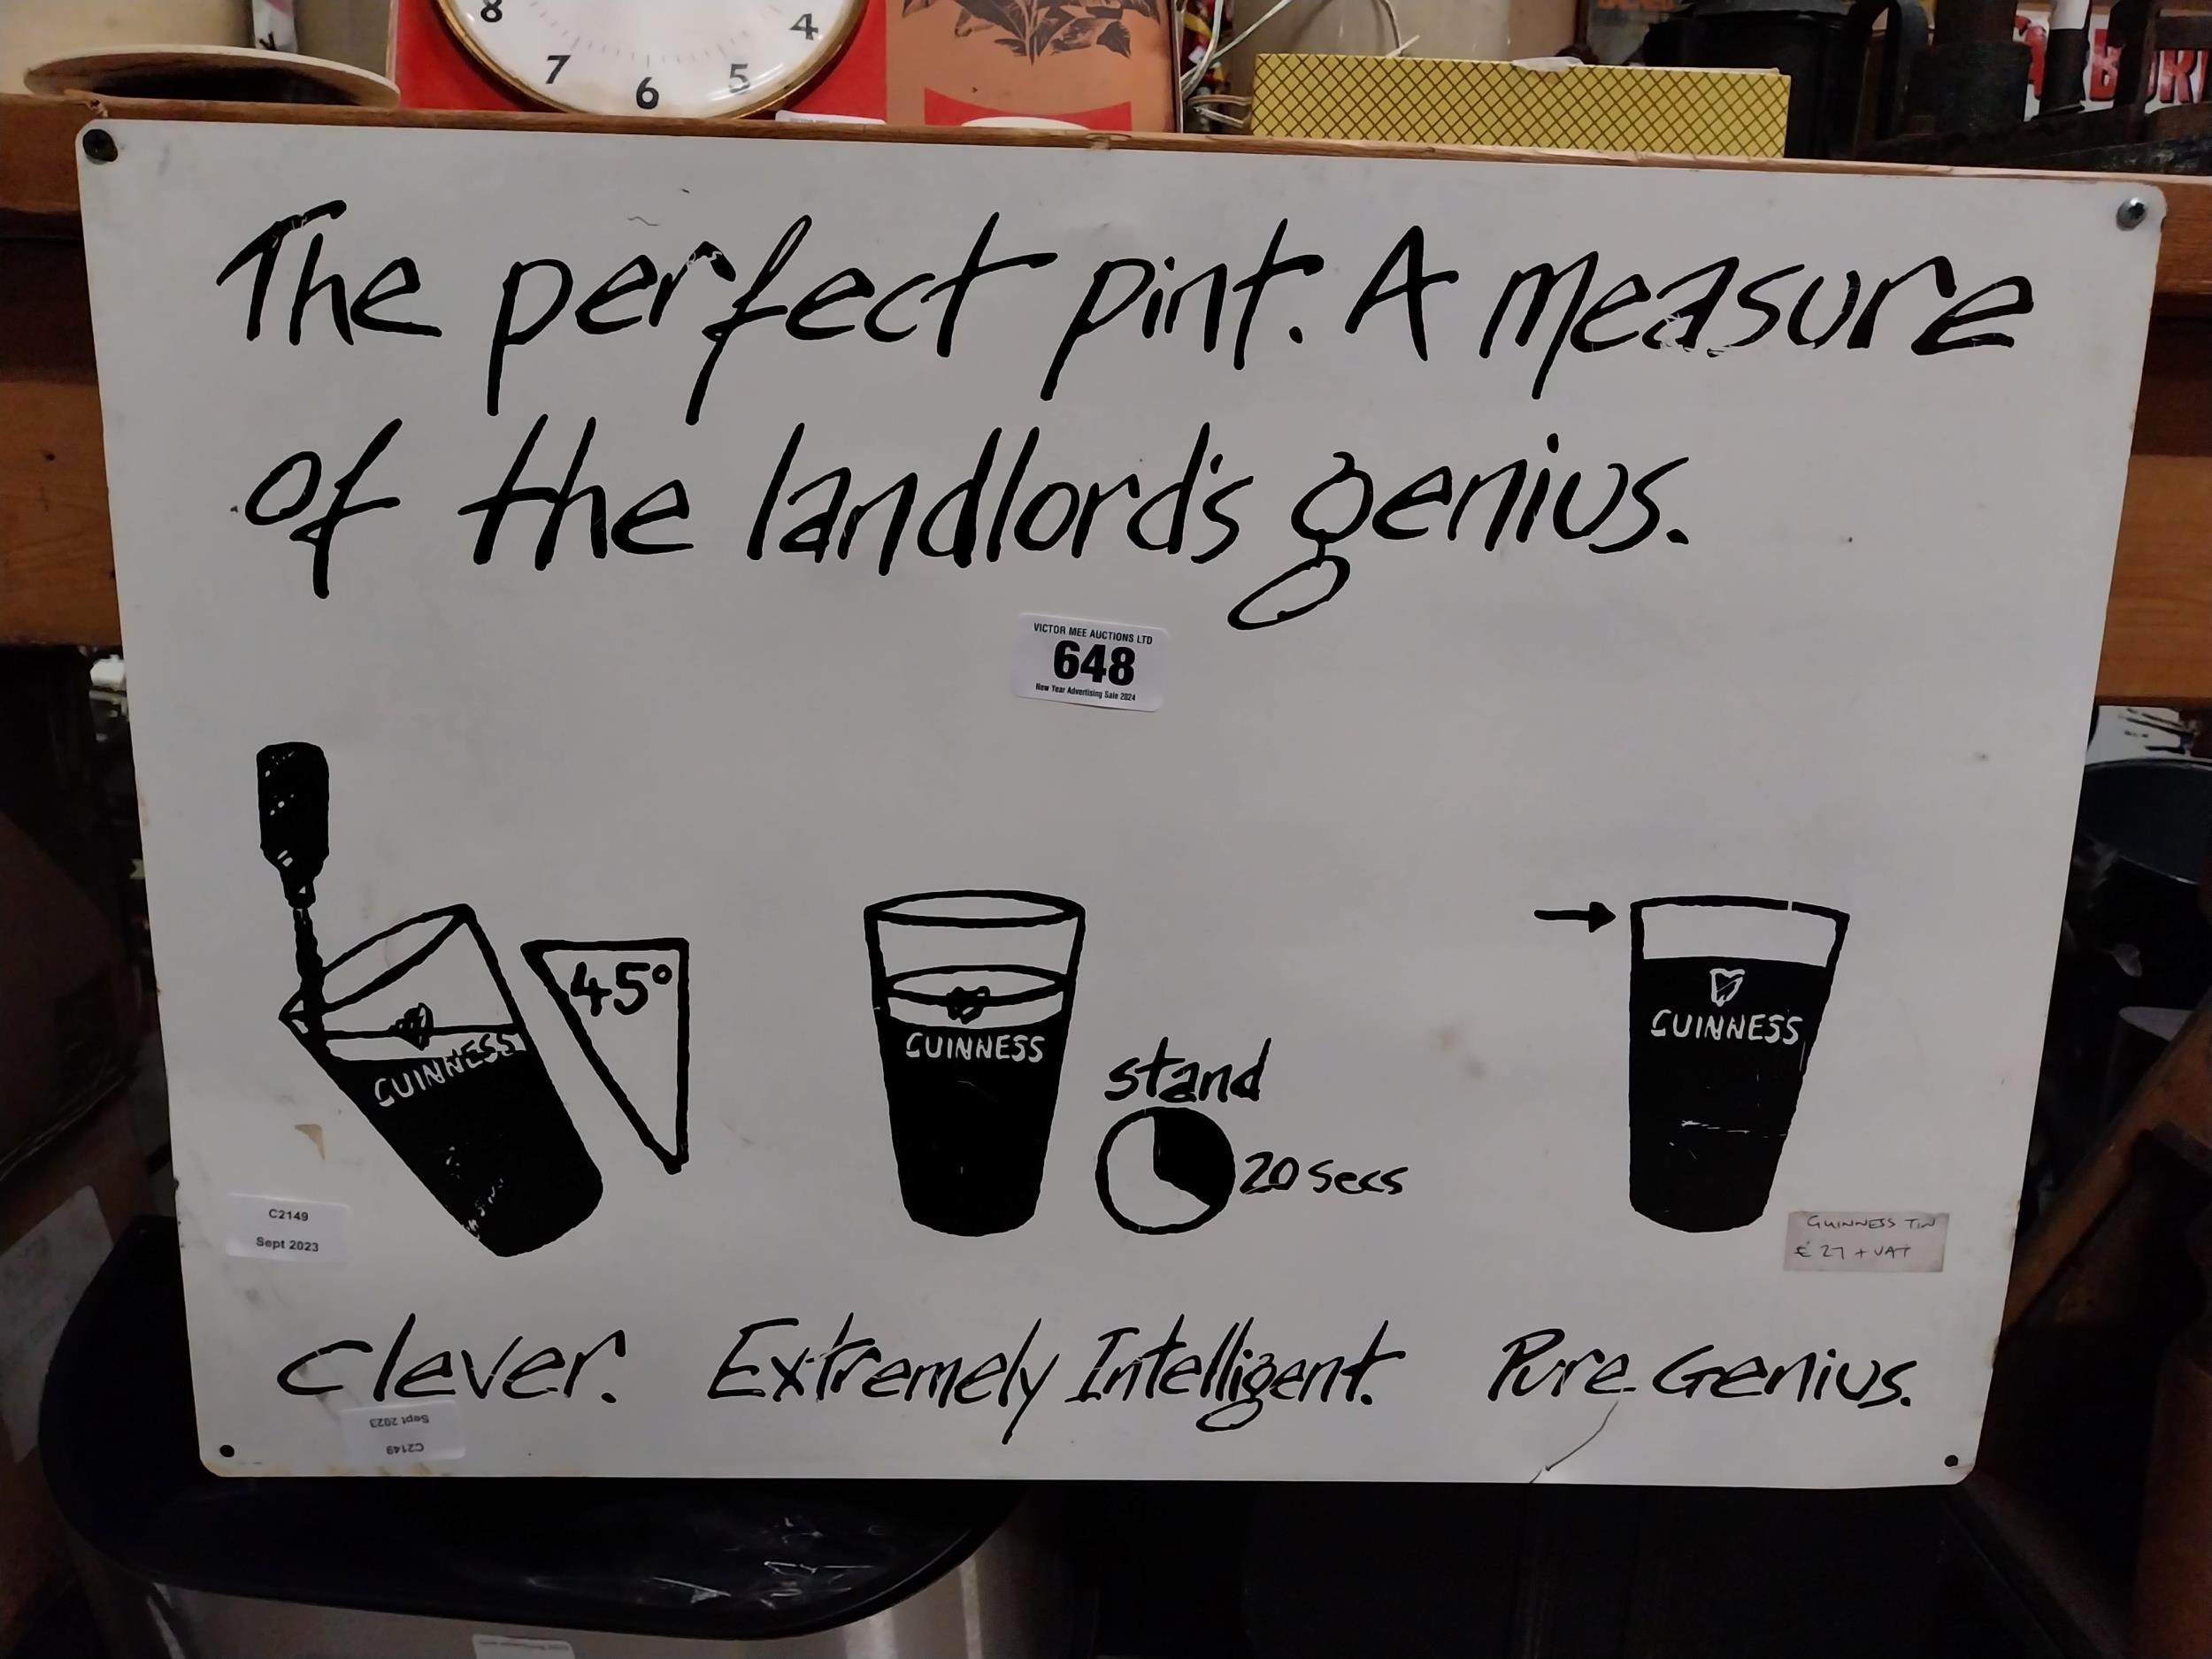 8 7 6 5 4
The perfect pint. A measure
of the landlord's genius.
VICTOR MEE AUCTIONS LTD
648
New Year Advertising Sale 2024
45°
GUINNESS
GUINNESS
stand
20 secs
GUINNESS
C2149
Sept 2023
GUINNESS TIN
£27 + VAT
Clever. Extremely Intelligent. Pure Genius.
Sept 2023
C2149